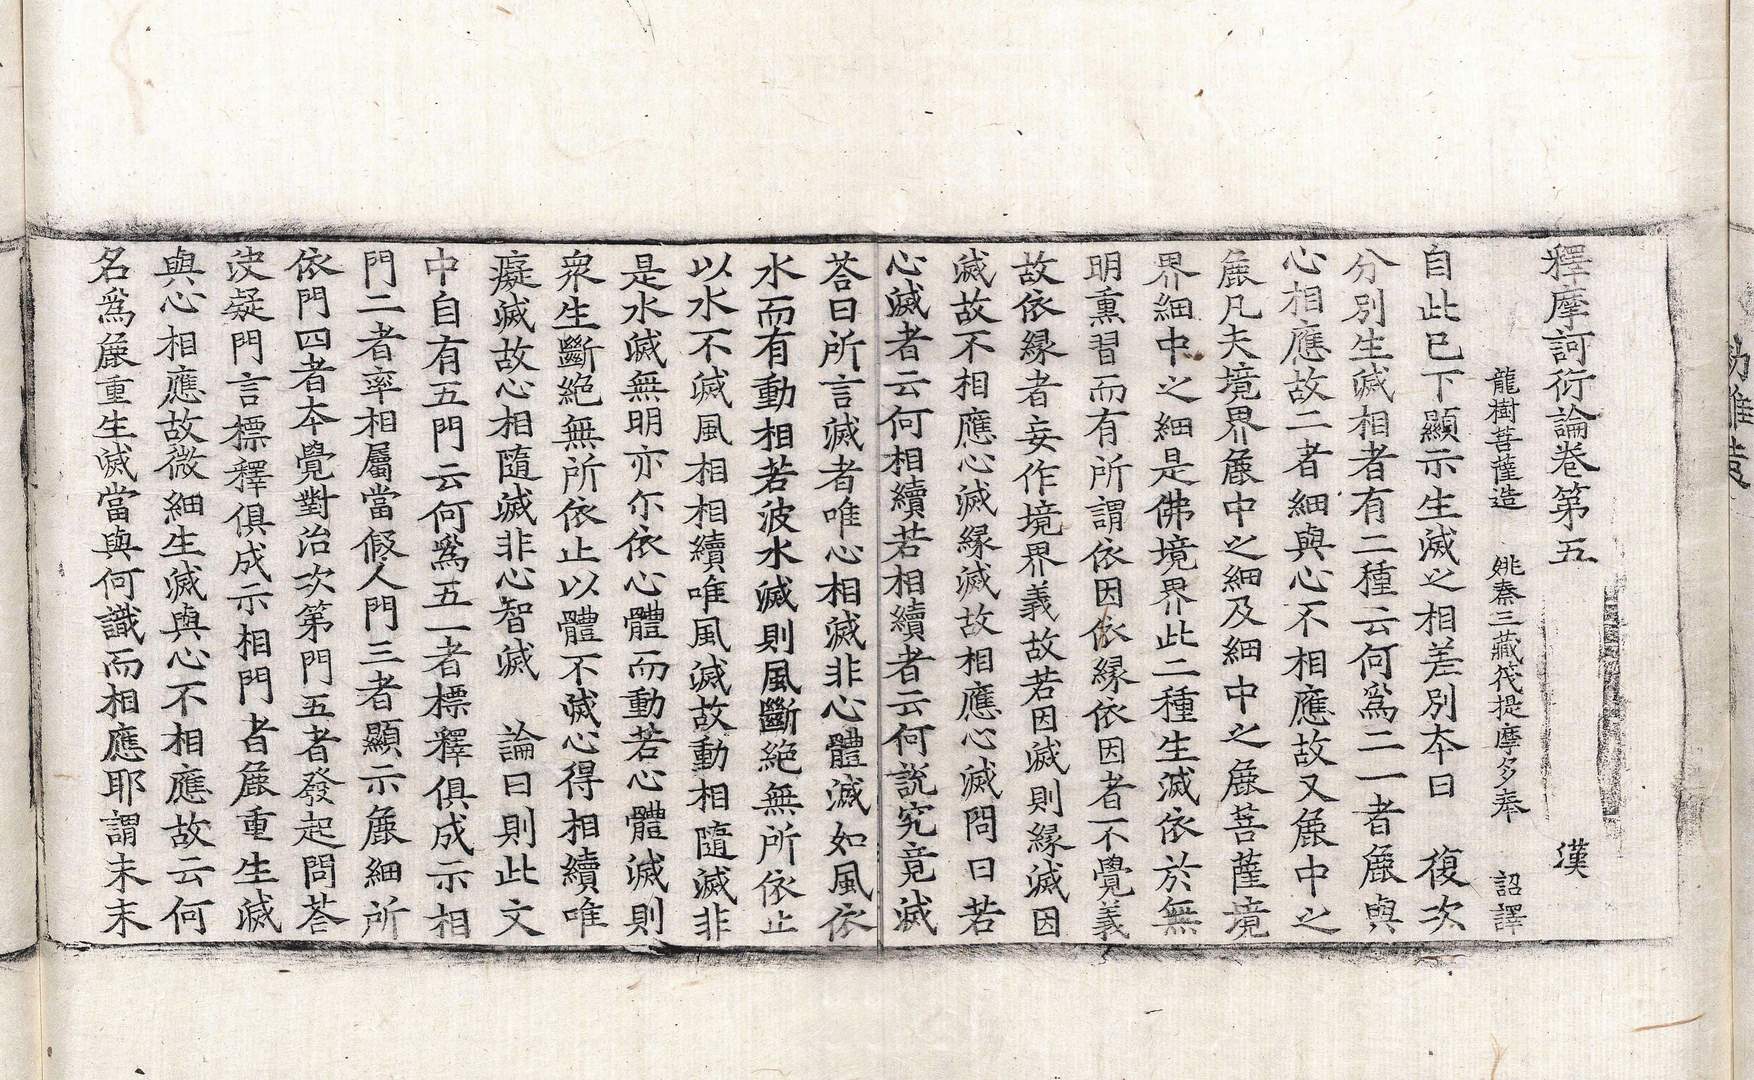 釋摩訶衍論卷第五　漢
龍樹菩薩造　姚秦三藏筏提摩多奉　詔譯
自此已下顯示生滅之相差別夲曰　復次
分別生滅相者有二種云何爲二一者麁與
心相應故二者細與心不相應故又麁中之
麁凡夫境界麁中之細及細中之麁菩薩境
界細中之細是佛境界此二種生滅依於無
明熏習而有所謂依因依緣依因者不覺義
故依緣者妄作境界義故若因滅則緣滅因
滅故不相應心滅緣滅故相應心滅問曰若
心滅者云何相續若相續者云何說究竟滅
荅曰所言滅者唯心相滅非心體滅如風依
水而有動相若波水滅則風斷絕無所依止
以水不滅風相相續唯風滅故動相隨滅非
是水滅無明亦尒依心體而動若心體滅則
衆生斷絕無所依止以體不滅心得相續唯
癡滅故心相隨滅非心智滅　論曰則此文
中自有五門云何爲五一者標釋俱成示相
門二者率相屬當假人門三者顯示麁細所
依門四者夲覺對治次第門五者發起問荅
決疑門言標釋俱成示相門者麁重生滅
與心相應故微細生滅與心不相應故云何
名爲麁重生滅當與何識而相應耶謂末末